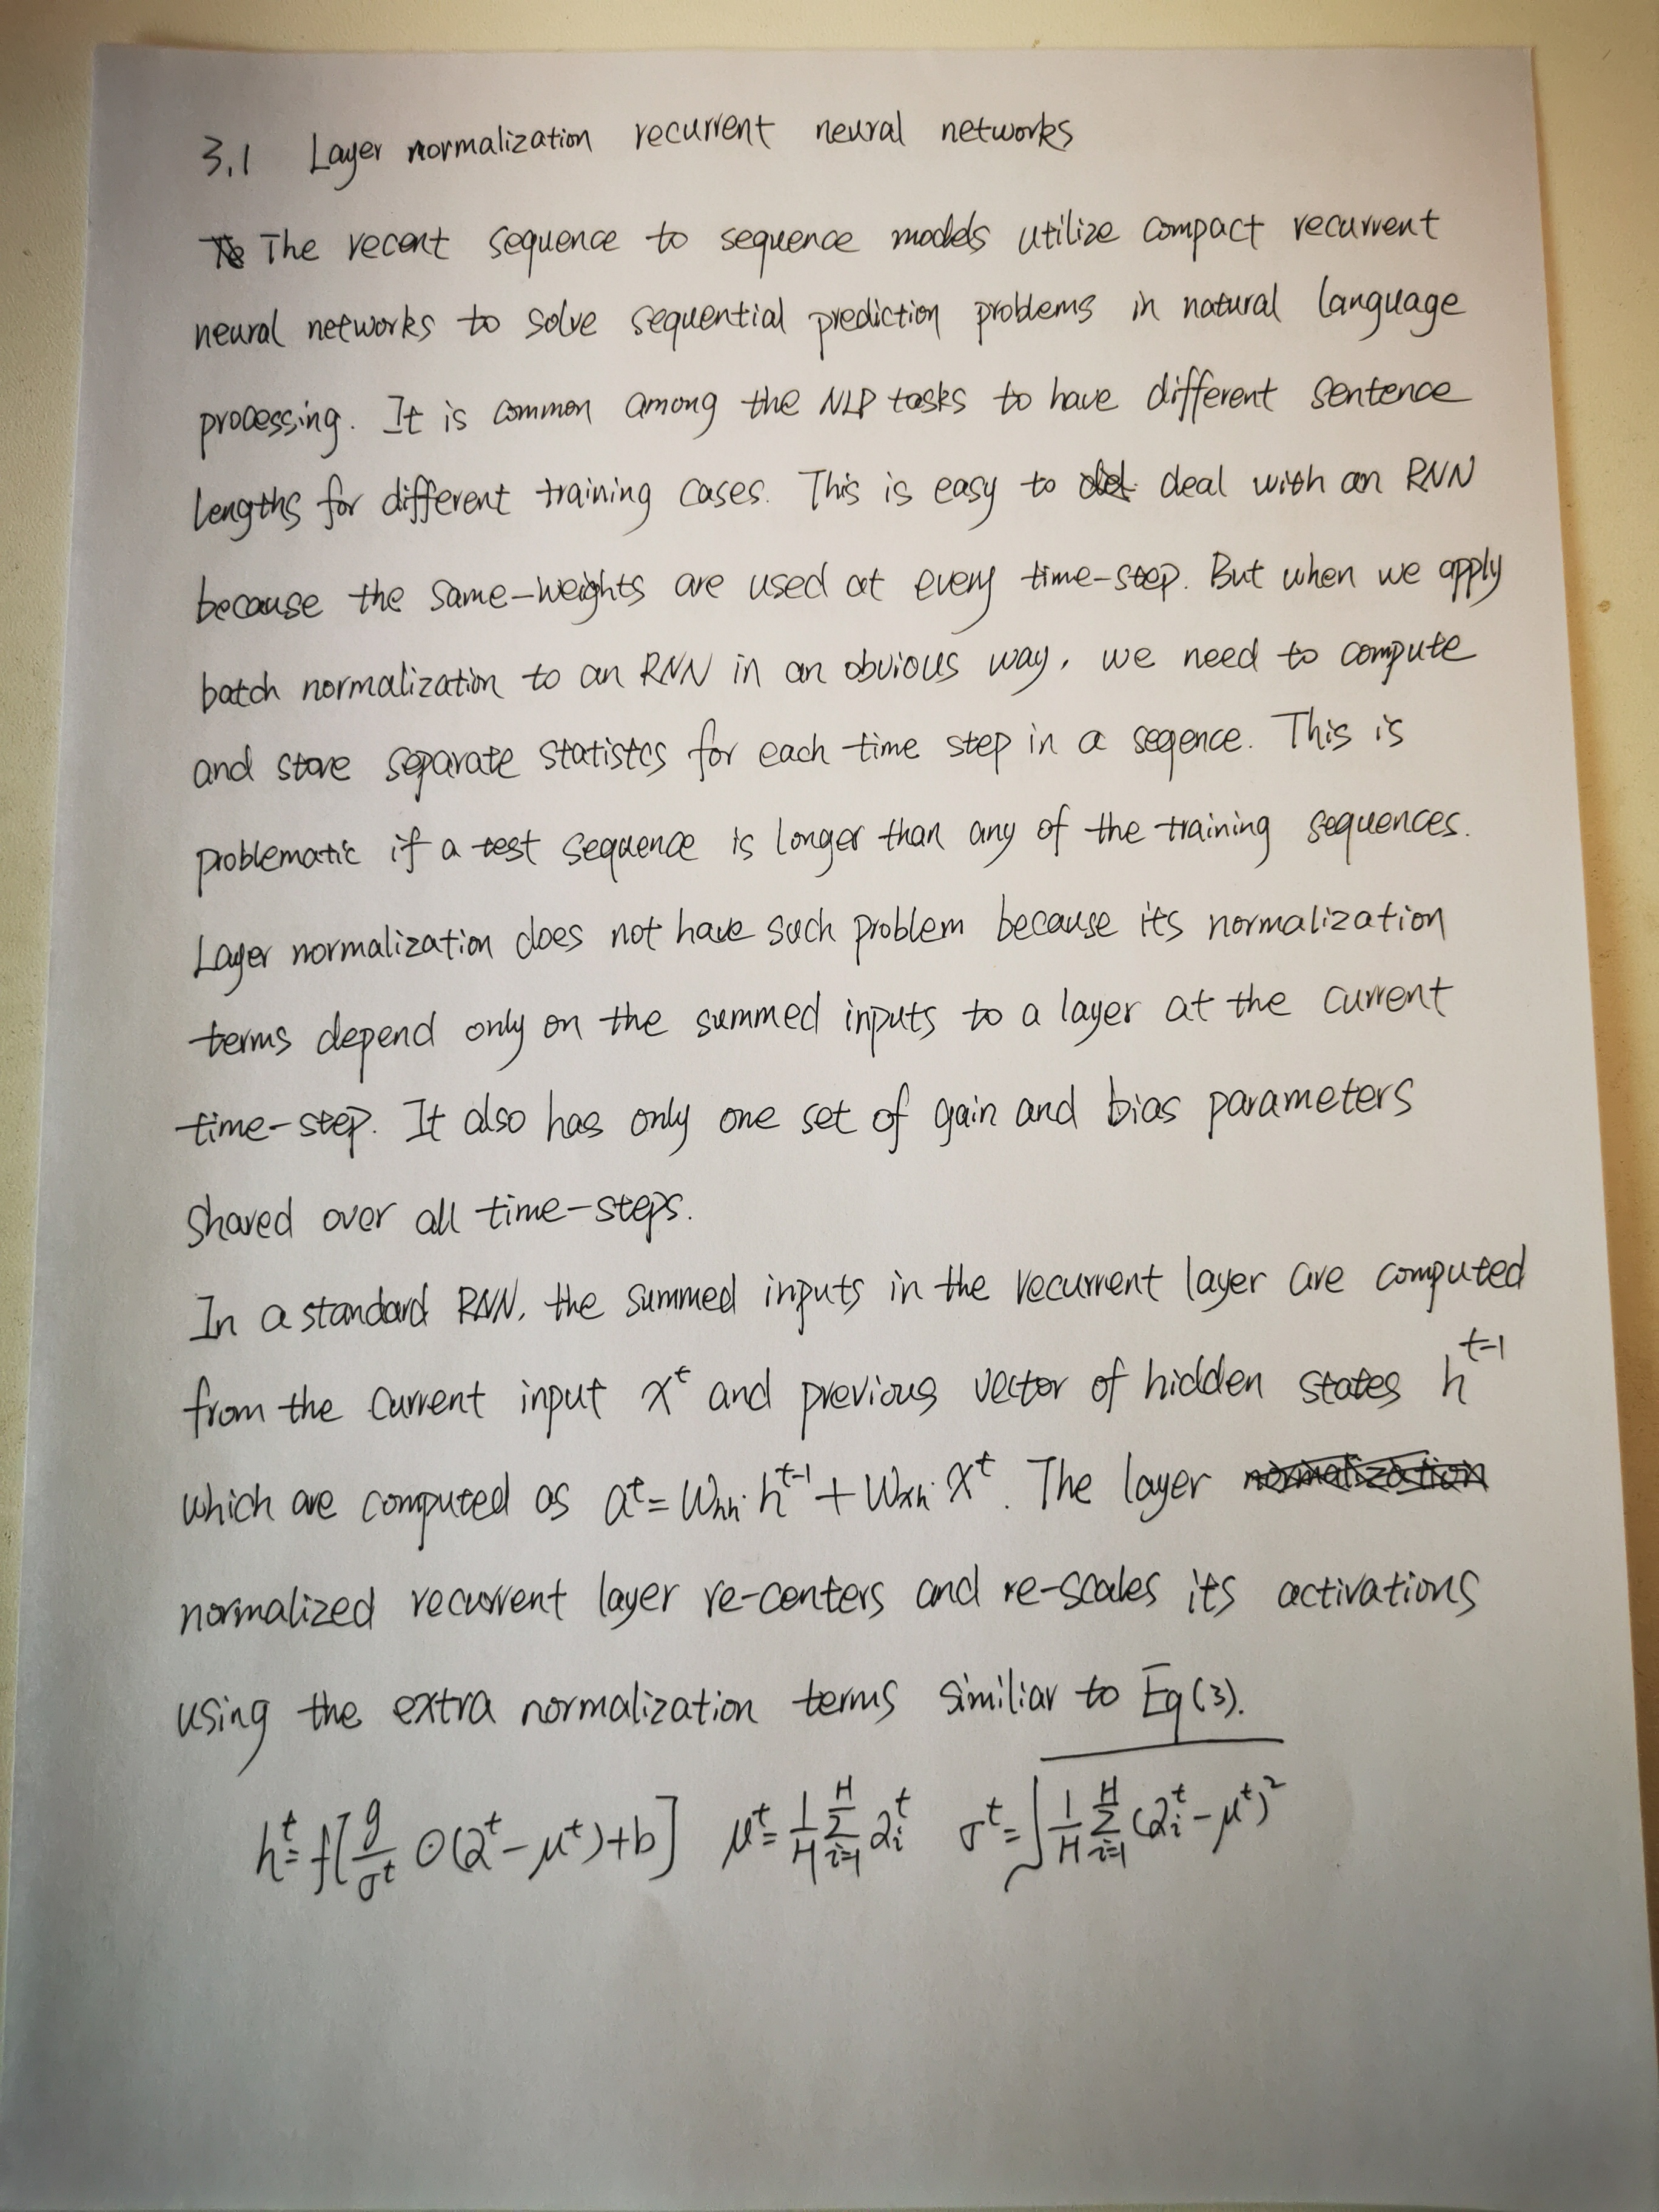 3.1 Layer normalization recurrent neural networks
The recent sequence to sequence models utilize compact recurrent
neural networks to solve sequential prediction problems in natural language
processing. It is common among the NLP tasks to have different sentence
lengths for different training cases. This is easy to deal with an RNN
because the same-weights are used at every time-step. But when we apply
batch normalization to an RNN in an obvious way, we need to compute
and store separate statistcs for each time step in a seqence. This is
problematic if a test sequence is longer than any of the training sequences.
Layer normalization does not have such problem because its normalization
terms depend only on the summed inputs to a layer at the current
time-step. It also has only one set of gain and bias parameters
shared over all time-steps.
In a standard RNN, the summed inputs in the recurrent layer are computed
from the current input x^t and previous vector of hidden states h^{t-1}
which are computed as a^t = W_{hh} h^{t-1} + W_{xh} x^t. The layer
normalized recurrent layer re-centers and re-scales its activations
using the extra normalization terms similiar to Eq(3).
h^t = f[\frac{g}{σ^t} ⊙ (a^t - μ^t) + b] μ^t = \frac{1}{H} \sum_{i=1}^{H} a_i^t σ^t = \sqrt{\frac{1}{H} \sum_{i=1}^{H} (a_i^t - μ^t)^2}